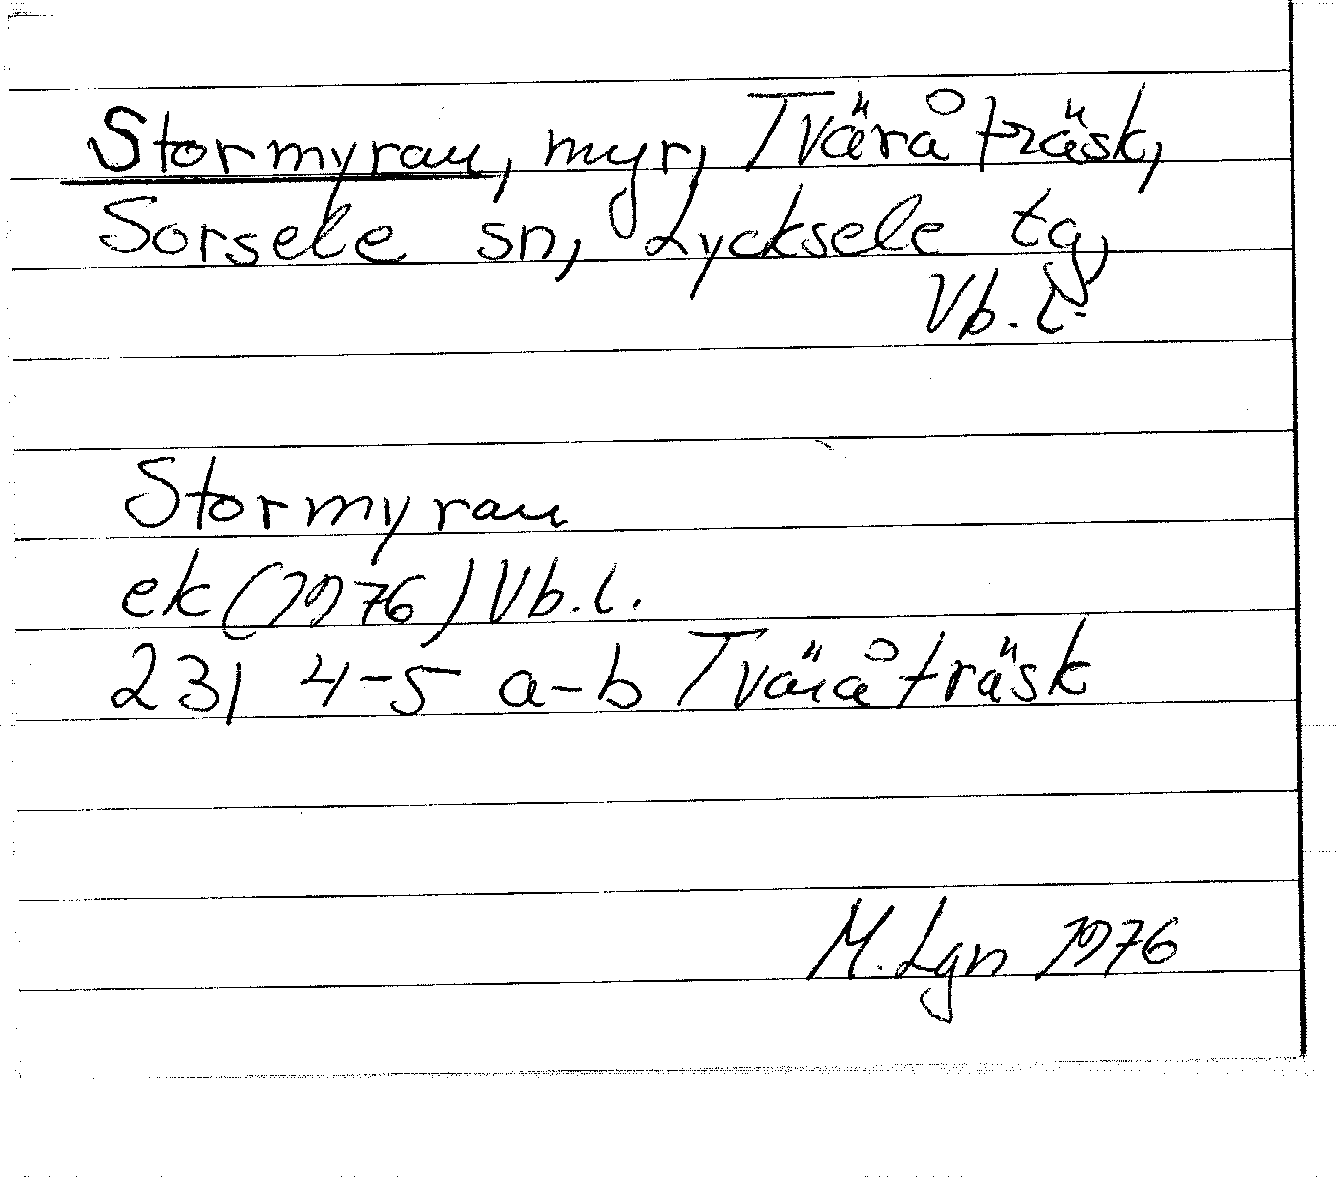 Stormyran, myr, Tväråträsk,
Sorsele sn, Lycksele tg,
Vb. l.
Stormyran
ek (1976) Vb. l.
23I 4-5 a-b Tväråträsk
M. Lgn 1976